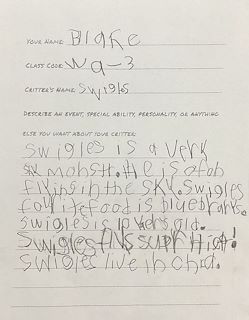 YOUR NAME: Blake
CLASS CODE: Wa-3
CRITTER'S NAME: Swigles
DESCRIBE AN EVENT, SPECIAL ABILITY, PERSONALITY, OR ANYTHING
ELSE YOU WANT ABOUT YOUR CRITTER:
Swigles is a verk
monstt. He is afah
flying in the SKy. Swigles
food is bluebarks.
Swigles is 10 yers old.
Swigles supr Hrot!
Swigles live in